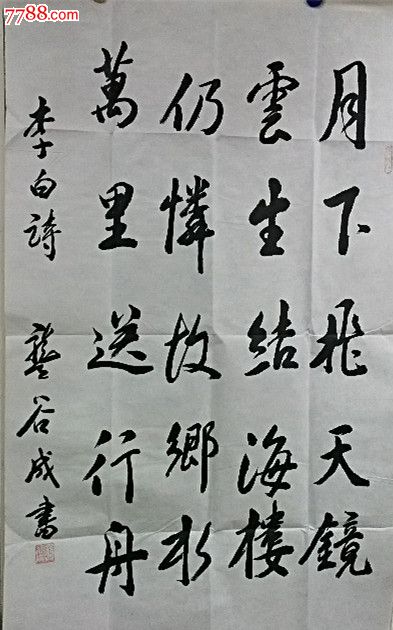 7788.com
月下飛天鏡
雲生結海樓
仍憐故鄉水
萬里送行舟
李白詩 龔谷成書